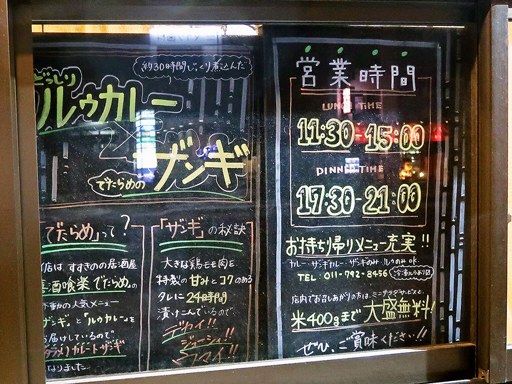 約30時間じっくり煮込んだ
どっしり
ルゥカレー
と
でたらめの
ザンギ
「でたらめ」って?
店は、すすきのの居酒屋
酒喰楽 でたらめの
動の人気メニュー
ザンギ」と「ルゥカレー」を
届けしているので
ルゥカレーとザンギ
なりました。
「ザンギ」の秘訣
大きな鶏モモ肉を
特製の 甘みとコクのある
タレに24時間
漬けこんでいるので
デカイ!!
ジューシー!!
ウマイ!!
営業時間
LUNCH TIME
11:30-15:00
DINNER TIME
17:30-21:00
お持ち帰りメニュー充実!!
カレー・ザンギカレー・ザンギのみ・ルゥのみ OK
TEL: 011-792-8456
店内でお召しあがりの方は、ミニサラダサービスで
米400gまで大盛無料!
ぜひ、ご賞味ください!!